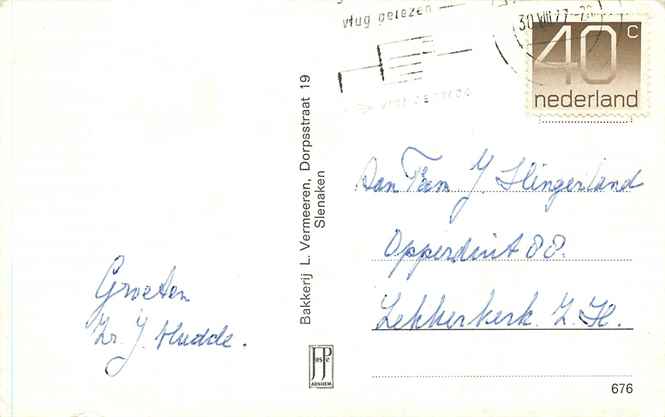 vlug gelezen
30 VIII 77
40 c
nederland
Bakkerij L. Vermeeren, Dorpsstraat 19
Slenaken
Aan Fam J. Slingerland
Opperduit 88.
Lekkerkerk. Z.H.
Groeten
Zr. J. Hudde.
JosPé
ARNHEM
676